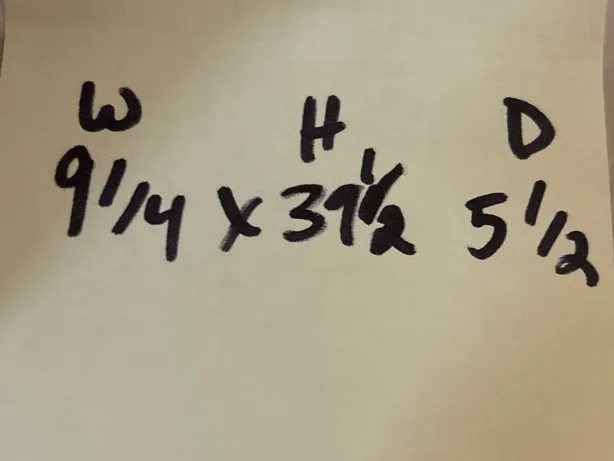 W H D
9 1/4 x 39 1/2 5 1/2